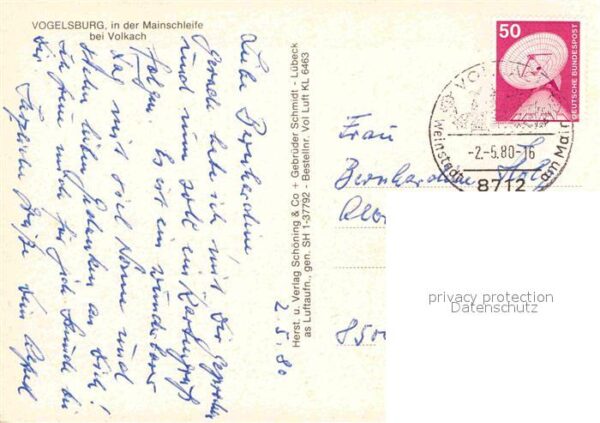 VOGELSBURG, in der Mainschleife
bei Volkach
Liebe Bernhardine!
Gerade habe ich mit Dir gesprochen
und nun soll ein Kartengruß
folgen. Es ist ein wunderbarer
Tag mit viel Sonne und
lieben Gedanken an Dich!
Ich freue mich für jede Stunde bei
Dir. Herzliche Grüße Dein
2.5.80
Herst. u. Verlag Schöning & Co + Gebrüder Schmidt - Lübeck
as Luftaufn., gen. SH 1-37792 - Bestellnr. Vol Luft KL 6463
50
DEUTSCHE BUNDESPOST
Weinstadt am Main
-2.-5.80-16
8712
Frau
Bernhardine
850
privacy protection
Datenschutz